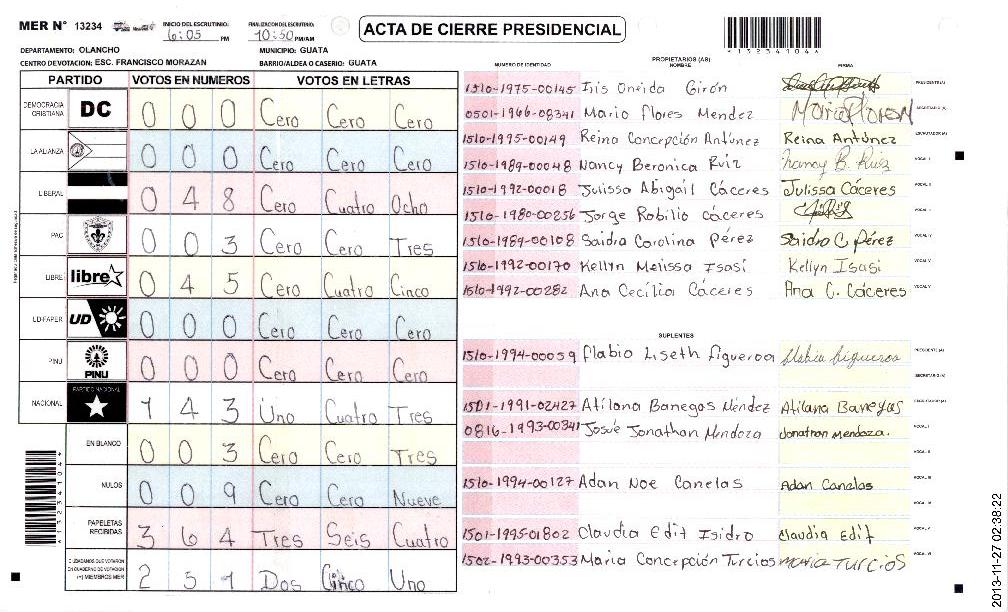 MER N° 13234
INICIO DEL ESCRUTINIO: 6:05 PM
FINALIZACION DEL ESCRUTINIO: 10:50 PM/AM
ACTA DE CIERRE PRESIDENCIAL
DEPARTAMENTO: OLANCHO
MUNICIPIO: GUATA
CENTRO DE VOTACION: ESC. FRANCISCO MORAZAN
BARRIO/ALDEA O CASERIO: GUATA
PARTIDO VOTOS EN NUMEROS VOTOS EN LETRAS
DEMOCRACIA CRISTIANA DC 0 0 0 Cero Cero Cero
LA ALIANZA 0 0 0 Cero Cero Cero
LIBERAL 0 4 8 Cero Cuatro Ocho
PAC 0 0 3 Cero Cero Tres
LIBRE libre 0 4 5 Cero Cuatro Cinco
UD/FAPER UD 0 0 0 Cero Cero Cero
PINU PINU 0 0 0 Cero Cero Cero
NACIONAL PARTIDO NACIONAL 1 4 3 Uno Cuatro Tres
EN BLANCO 0 0 3 Cero Cero Tres
NULOS 0 0 9 Cero Cero Nueve
PAPELETAS RECIBIDAS 3 6 4 Tres Seis Cuatro
CIUDADANOS QUE VOTARON EN CUADERNO DE VOTACION (+) MIEMBROS MER 2 5 1 Dos Cinco Uno
NUMERO DE IDENTIDAD PROPIETARIOS (AS) NOMBRE FIRMA
1510-1975-00145 Iris Oneida Girón PRESIDENTE(A)
0501-1966-08341 Mario Flores Mendez Mario Flores SECRETARIO (A)
1510-1995-00149 Reina Concepción Antúnez Reina Antúnez ESCRUTADOR (A)
1510-1989-00048 Nancy Beronica Ruiz Nancy B. Ruiz VOCAL I
1510-1992-00018 Julissa Abigail Cáceres Julissa Cáceres VOCAL II
1510-1980-00256 Jorge Robilio Cáceres
1510-1989-00108 Saidra Carolina Pérez Saidra C Pérez VOCAL IV
1510-1992-00170 Kellyn Melissa Isasi Kellyn Isasi VOCAL V
1510-1992-00282 Ana Cecilia Cáceres Ana C. Cáceres VOCAL V
SUPLENTES
1510-1994-00059 Flabio Liseth Figueroa PRESIDENTE (A)
SECRETARIO (A)
1501-1991-02427 Atilana Banegas Méndez Atilana Banegas ESCRUTADOR (A)
0816-1993-00341 Josué Jonathan Mendoza Jonathan Mendoza. VOCAL I
VOCAL II
1510-1994-00127 Adan Noe Canelas Adan Canelas VOCAL III
VOCAL IV
1501-1995-01802 Claudia Edit Isidro Claudia Edit VOCAL V
1502-1993-00353 Maria Concepción Turcios Maria Turcios VOCAL VI
2013-11-27 02:38:22